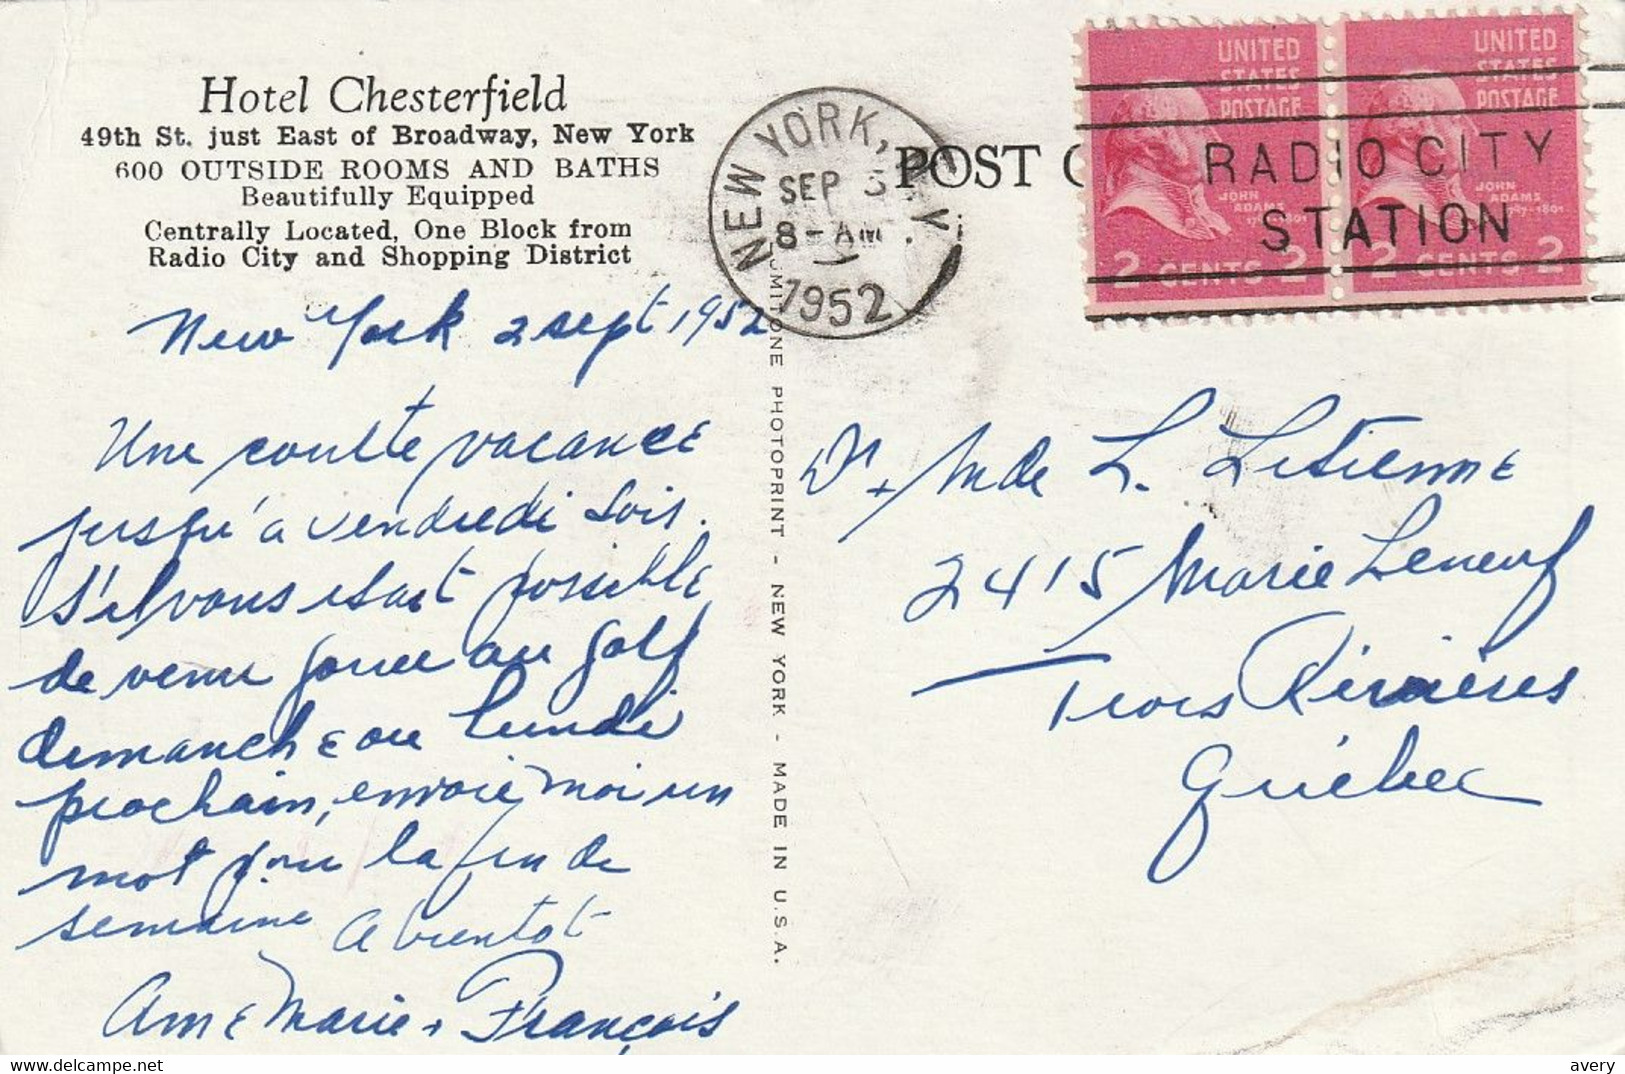 Hotel Chesterfield
49th St. just East of Broadway, New York
600 OUTSIDE ROOMS AND BATHS
Beautifully Equipped
Centrally Located, One Block from
Radio City and Shopping District
New York 2 sept 1952
Une courte vacance
jusqu'à vendredi soir.
S'il vous était possible
de venir jouer au golf
dimanche ou lundi
prochain, envoie moi un
mot pour la fin de
semaine A bientot
Anne Marie + François
LUMITONE PHOTOPRINT - NEW YORK - MADE IN U.S.A.
NEW YORK, N.Y.
SEP 3
8-AM
1952
POST
UNITED
STATES
POSTAGE
JOHN
ADAMS
1797-1801
2 CENTS 2
UNITED
STATES
POSTAGE
JOHN
ADAMS
1797-1801
2 CENTS 2
RADIO CITY
STATION
Dr + Mde L. Letienne
2415 Marie Leneuf
Trois Rivières
Québec
avery